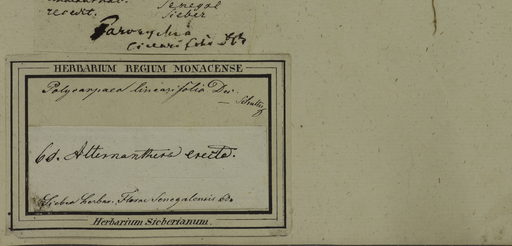 Senegal
recedit. Sieber
Paronychia
linearifolia DC
HERBARIUM REGIUM MONACENSE
Polycarpaea linearifolia Dec.
— Schultes
60. Alternanthera erecta.
Sieber herbar. Florae Senegalensis 60.
Herbarium Sieberianum.